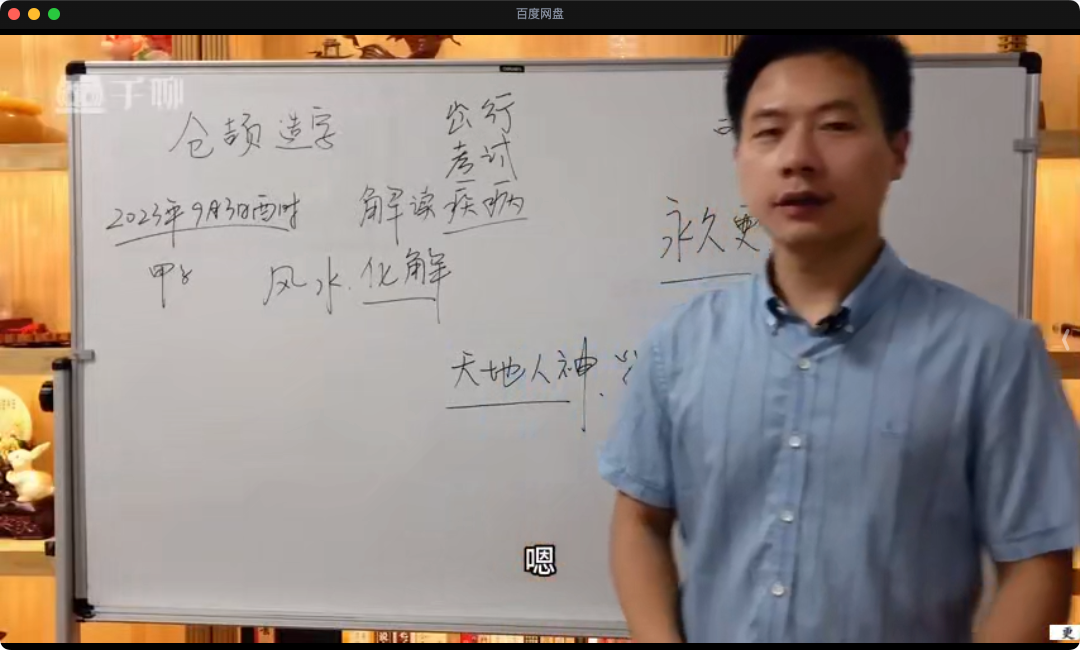 百度网盘
千聊
仓颉造字
出行
考试
2023年9月3日酉时
解读疾病
甲子
风水.化解
永久更
天地人神
嗯
更